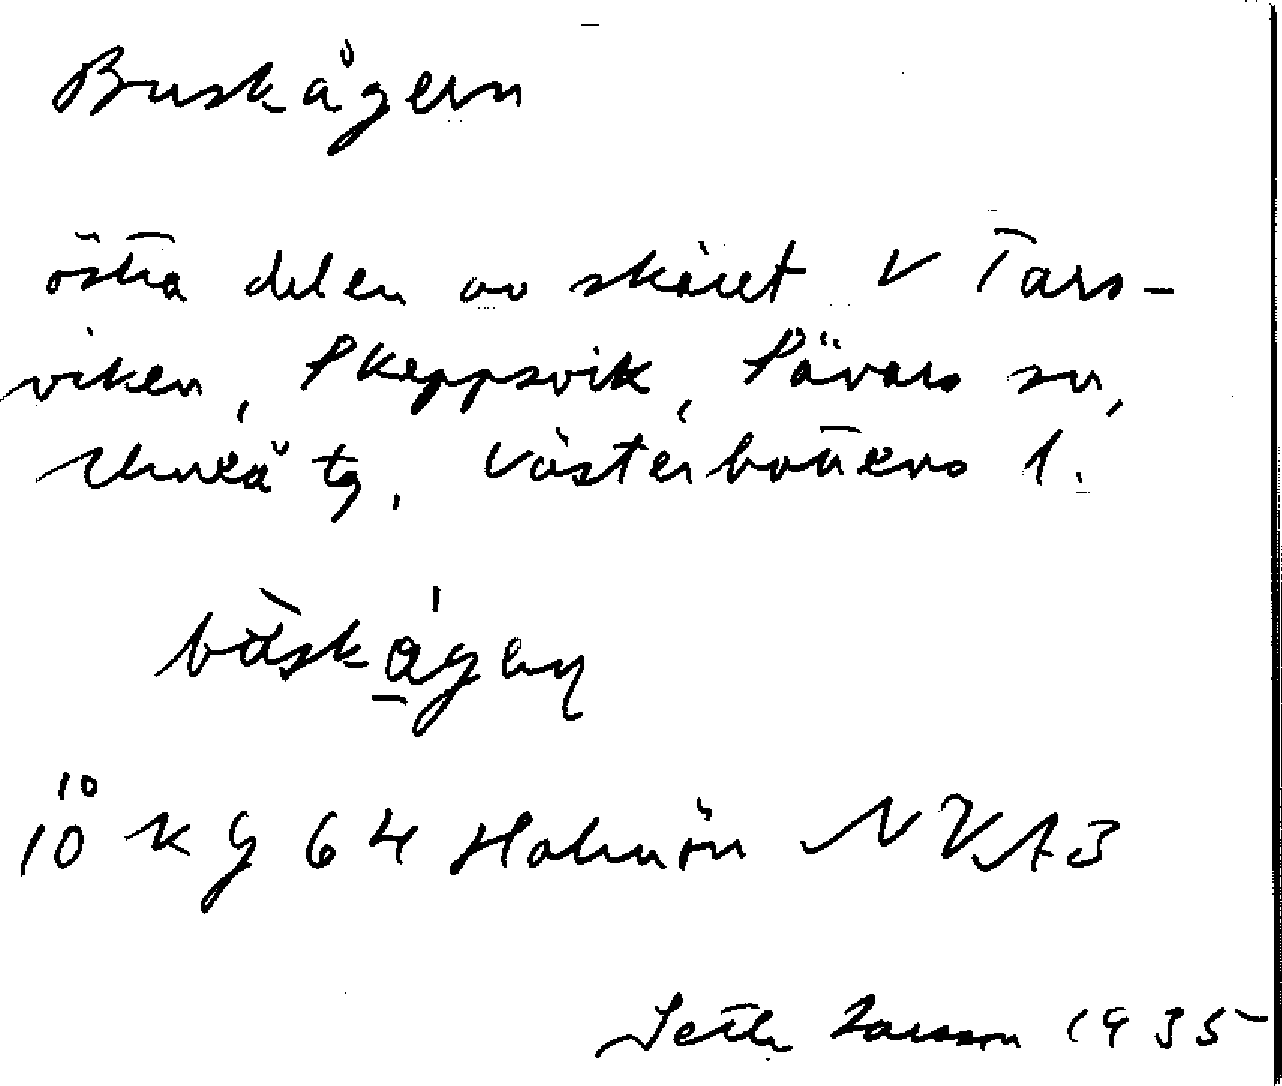 Buskågern
östra delen av skäret V Tars-
viken, Skeppsvik, Sävars sn,
Umeå tg, Västerbottens l.
10
10 KG 64 Holmön NV A3
Seth Larsson 1935